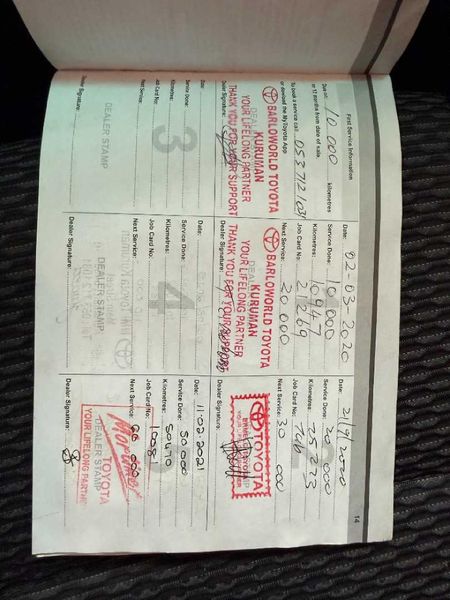 14
First Service Information
Due on: 10 000 kilometres
or 12 months from date of sale.
To book a service call 053 712 1031
or download the MyToyota App
BARLOWORLD TOYOTA
KURUMAN
YOUR LIFELONG PARTNER
THANK YOU FOR YOUR SUPPORT
Dealer Signature:
Date: 02-03-2020
Service Done: 10 000
Kilometres: 10947
Job Card No: 21269
Next Service: 20 000
BARLOWORLD TOYOTA
KURUMAN
YOUR LIFELONG PARTNER
THANK YOU FOR YOUR SUPPORT
Dealer Signature:
Date: 21/9/2020
Service Done: 20 000
Kilometres: 25 273
Job Card No: 746
Next Service: 30 000
TOYOTA
Dealer Signature:
3
Date:
Service Done:
Kilometres:
Job Card No:
Next Service:
DEALER STAMP
Dealer Signature:
4
Date:
Service Done:
Kilometres:
Job Card No:
Next Service:
DEALER STAMP
Dealer Signature:
Date: 11-02-2021
Service Done: 50 000
Kilometres: 50470
Job Card No: 10081
Next Service: 60 000
TOYOTA
DEALER STAMP
YOUR LIFELONG PARTNER
Dealer Signature: